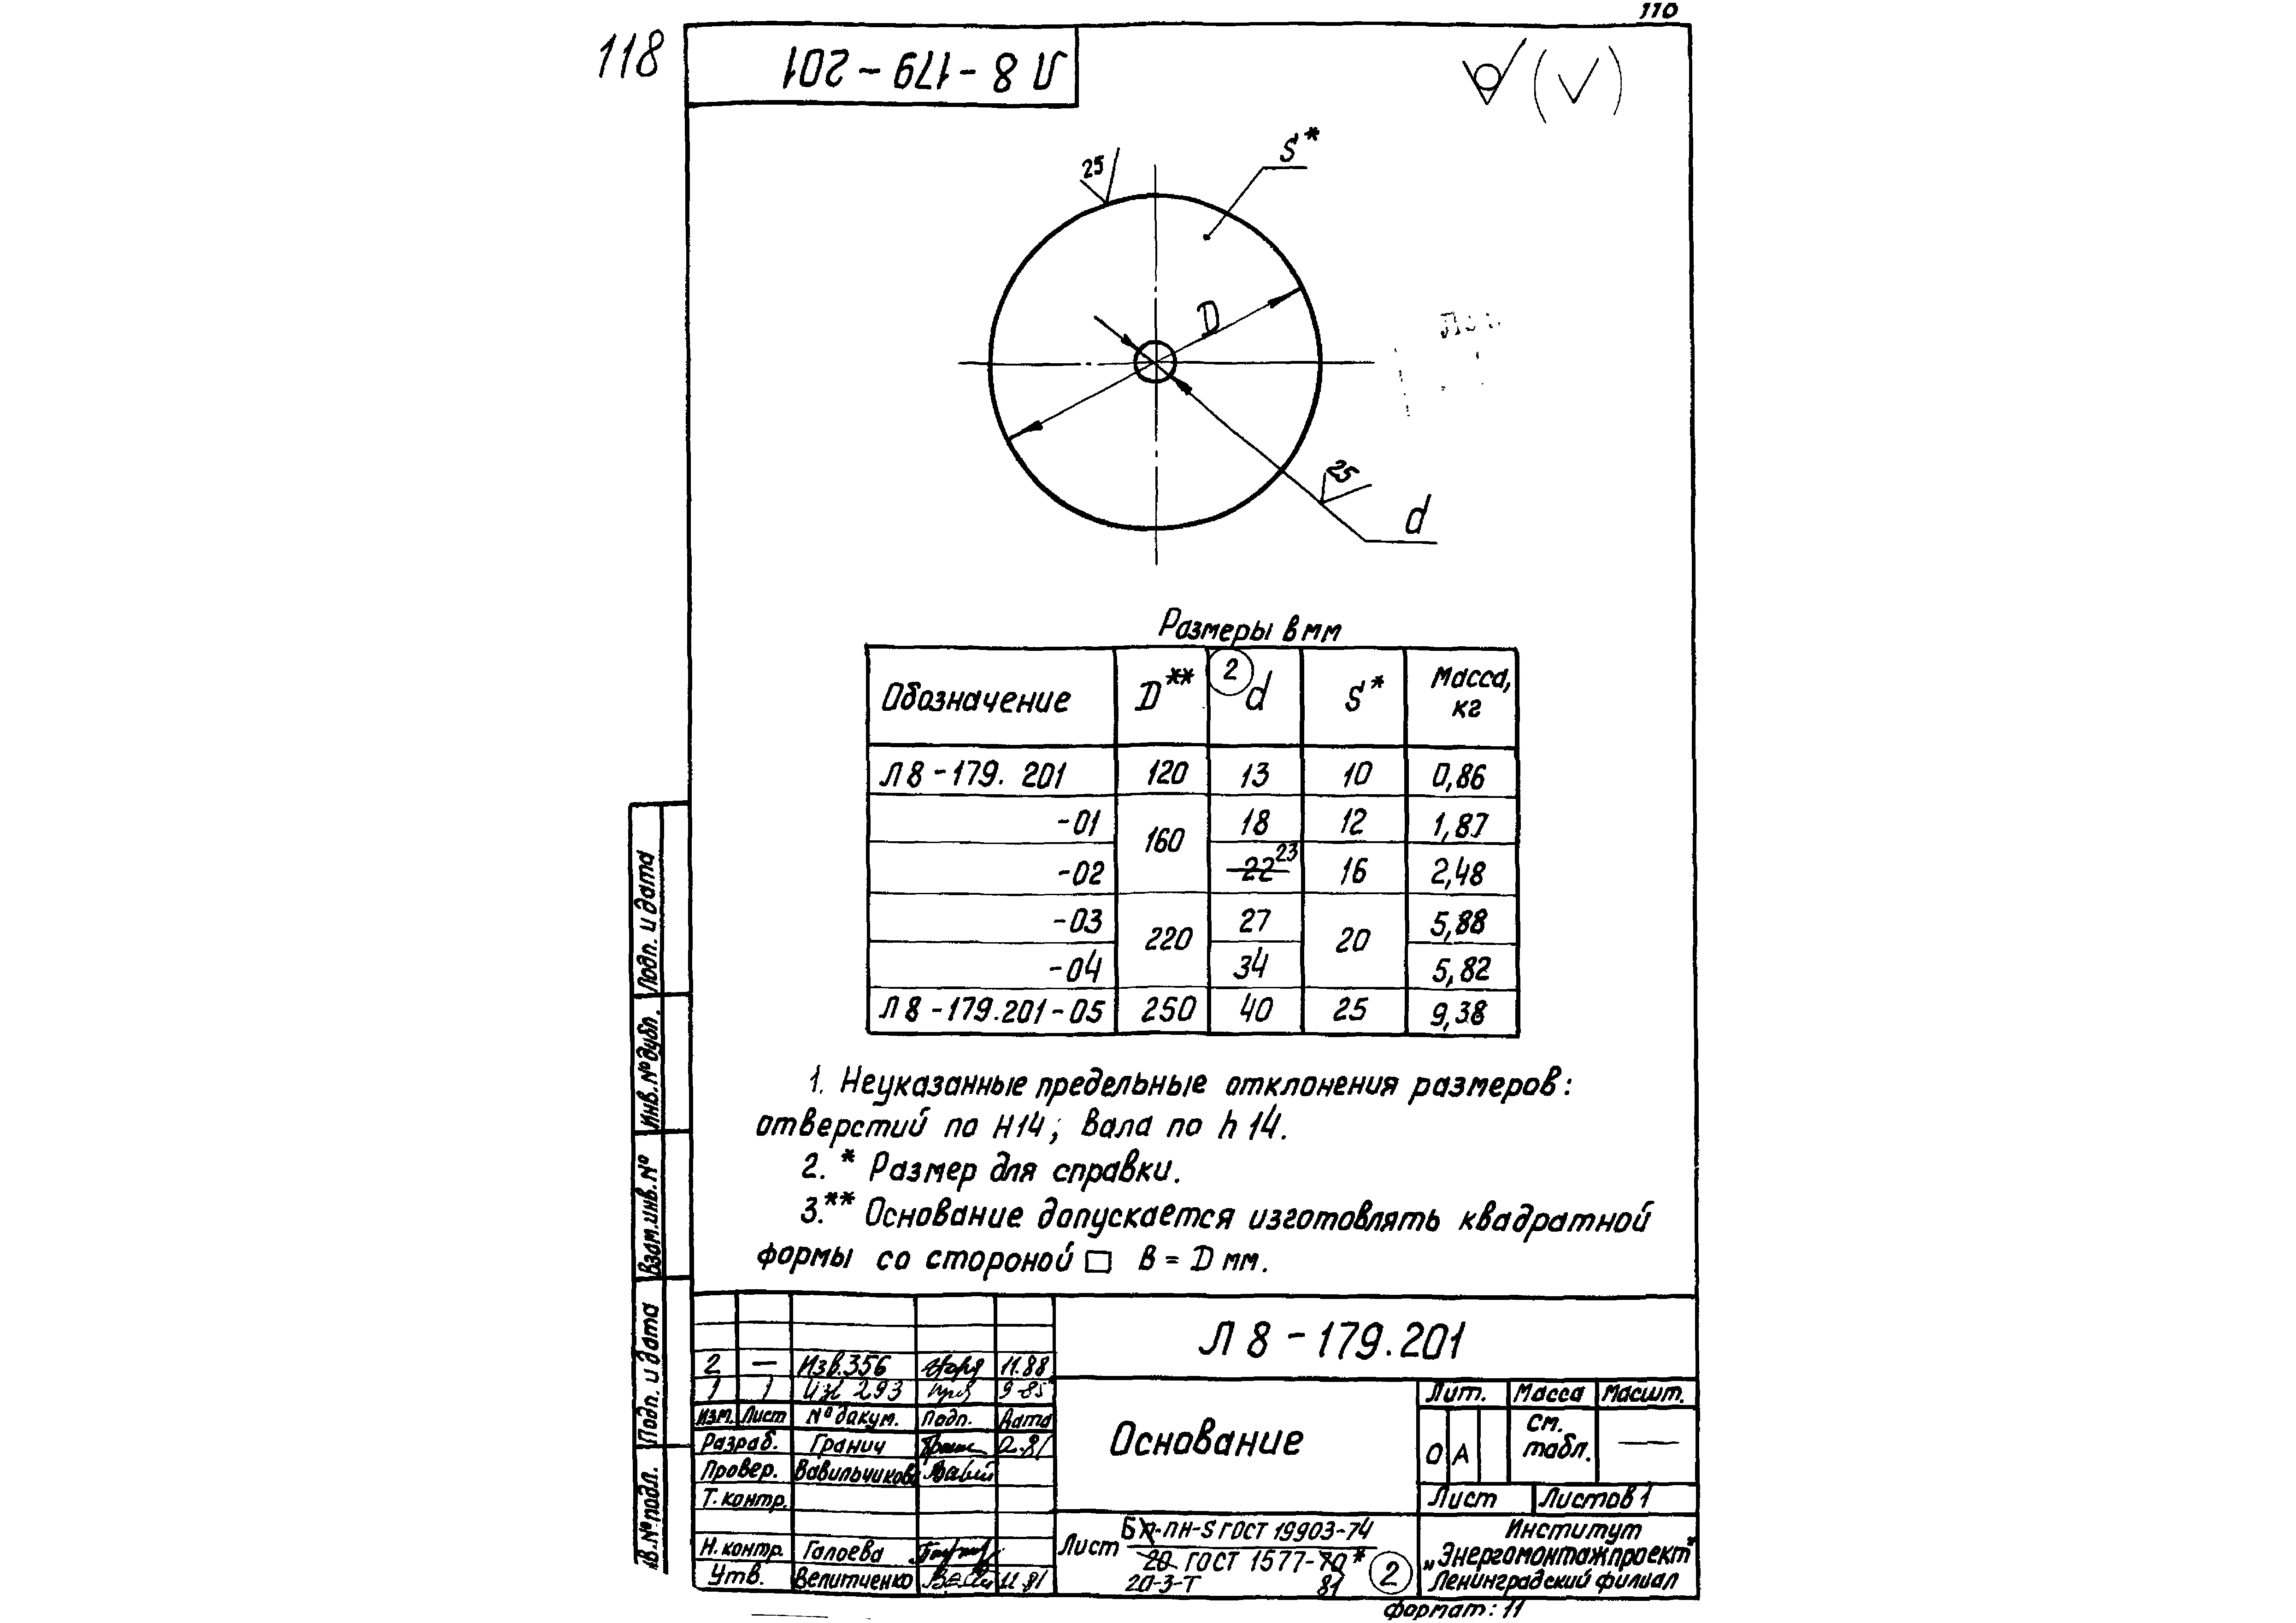 110
118
Л 8 - 179 - 201
25
S*
D
25
d
Размеры в мм
Обозначение D** 2 d S* Масса, кг
Л 8 - 179. 201 120 13 10 0,86
-01 160 18 12 1,87
-02 22 23 16 2,48
-03 220 27 20 5,88
-04 34 5,82
Л 8 - 179.201 - 05 250 40 25 9,38
1. Неуказанные предельные отклонения размеров:
отверстий по H14; вала по h 14.
2. * Размер для справки.
3.** Основание допускается изготовлять квадратной
формы со стороной □ В = D мм.
Подп. и дата
Инв.№ дубл.
Взам.инв.№
Подп. и дата
в.№ подл.
Л 8 - 179.201
2 — Изв.356 11.88
1 1 Изв 293 9-85
Изм. Лист № докум. Подп. Дата
Разраб. Гранич
Провер. Вавильчикова
Т. контр.
Н. контр. Галоева
Утв. Велитченко 11.81
Основание
Лит. Масса Масшт.
О А см. табл. —
Лист Листов 1
Лист Б -ПН-S ГОСТ 19903-74
20 ГОСТ 1577-70*
20-3-Т 81 2
Институт
„Энергомонтажпроект"
Ленинградский филиал
Формат: 11